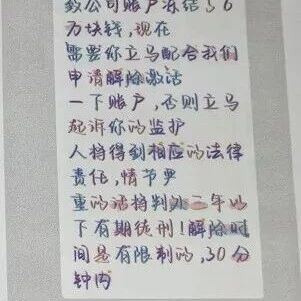 致公司账户冻结了6
万块钱,现在
需要你立马配合我们
申请解除激活
一下账户,否则立马
起诉你的监护
人将得到相应的法律
责任,情节严
重的话将判处三年以
下有期徒刑!解除时
间是有限制的,30分
钟内